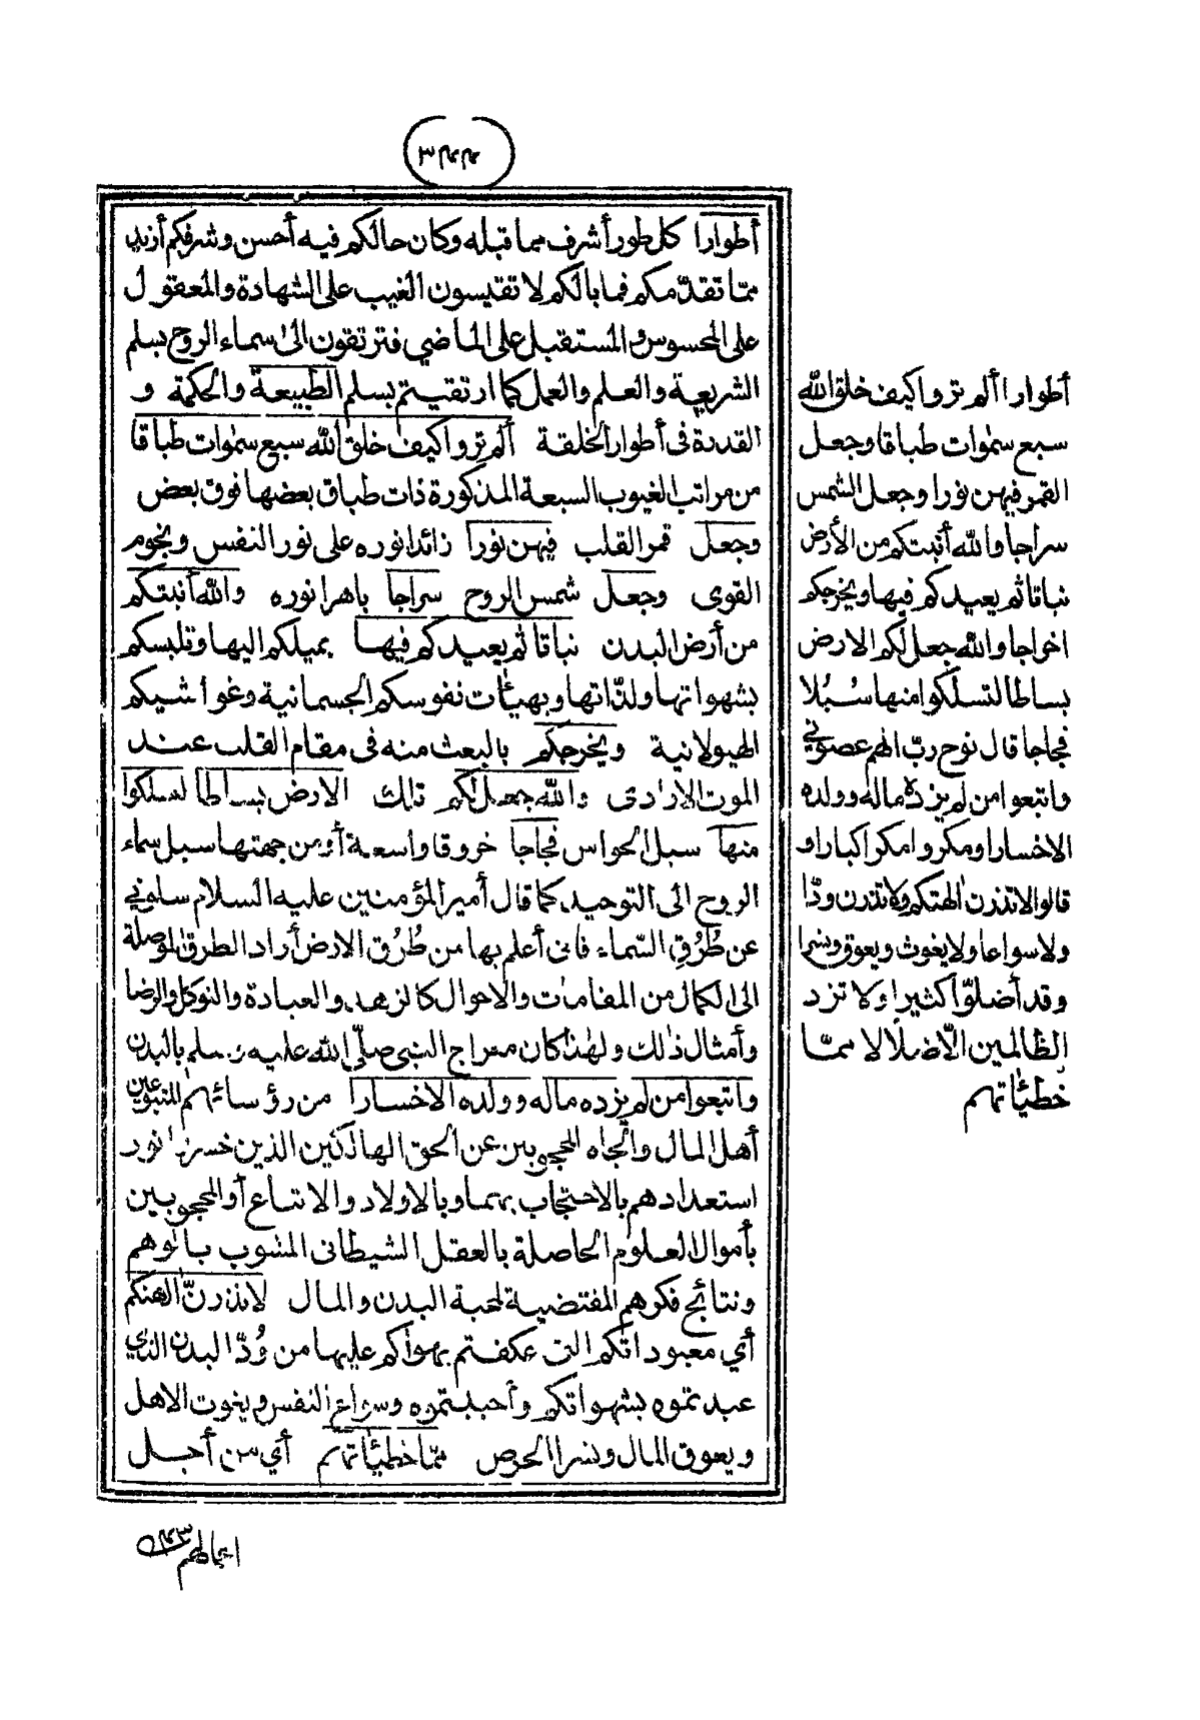 ٣٤٤
أطوارا كل طور أشرف مما قبله وكان حالكم فيه أحسن وشرفكم أزيد
ممّا تقدّمكم فما بالكم لا تقيسون الغيب على الشهادة والمعقول
على المحسوس والمستقبل على الماضي فترتقون الى سماء الروح بسلم
الشريعة والعلم والعمل كما ارتقيتم بسلم الطبيعة والحكمة و
القدرة فى أطوار الخلقة ألم تروا كيف خلق الله سبع سمٰوات طباقا
من مراتب الغيوب السبعة المذكورة ذات طباق بعضها فوق بعض
وجعل قمر القلب فيهن نورا زائدا نوره على نور النفس ونجوم
القوى وجعل شمس الروح سراجا باهرا نوره والله أنبتكم
من أرض البدن نباتا ثم يعيدكم فيها بميلكم اليها وتلبسكم
بشهواتها ولذّاتها وبهيئات نفوسكم الجسمانية وغواشيكم
الهيولانية ويخرجكم بالبعث منه فى مقام القلب عند
الموت الارادى والله جعل لكم تلك الارض بساطا لتسلكوا
منها سبل الحواس فجاجا خروقا واسعة أو من جهتها سبل سماء
الروح الى التوحيد كما قال أمير المؤمنين عليه السلام سلوني
عن طُرُقِ السّماء فانى أعلم بها من طُرُق الارض أراد الطرق الموصلة
الى الكمال من المقامات والاحوال كالزهد والعبادة والتوكل والرضا
وأمثال ذٰلك ولهٰذا كان معراج النبى صلّى الله عليه وسلم بالبدن
واتبعوا من لم يزده ماله وولده الا خسارا من رؤسائهم المتبوعين
أهل المال والجاه المحجوبين عن الحق الهالكين الذين خسروا نور
استعدادهم بالاحتجاب بهما وبالاولاد والاتباع أو المحجوبين
بأموال العلوم الحاصلة بالعقل الشيطانى المشوب بالوهم
ونتائج فكرهم المقتضية لمحبة البدن والمال لا تذرنّ آلهتكم
أي معبوداتكم التى عكفتم بهواكم عليها من وُدّ البدن الذي
عبدتموه بشهواتكم وأحببتموه وسواع النفس ويغوث الاهل
ويعوق المال ونسرا الحرص ممّا خطيئاتهم أي من أجل
اعمالهم
أطوارا ألم تروا كيف خلق الله
سبع سمٰوات طباقا وجعل
القمر فيهن نورا وجعل الشمس
سراجا والله أنبتكم من الأرض
نباتا ثم يعيدكم فيها ويخرجكم
اخراجا والله جعل لكم الارض
بساطا لتسلكوا منها سُبُلا
فجاجا قال نوح ربّ انهم عصوني
واتبعوا من لم يزده ماله وولده
الا خسارا ومكروا مكرا كبارا و
قالوا لا تذرن آلهتكم ولا تذرن ودّا
ولا سواعا ولا يغوث ويعوق ونسرا
وقد أضلّوا كثيرا ولا تزد
الظالمين الّا ضلالا ممّا
خطيئاتهم